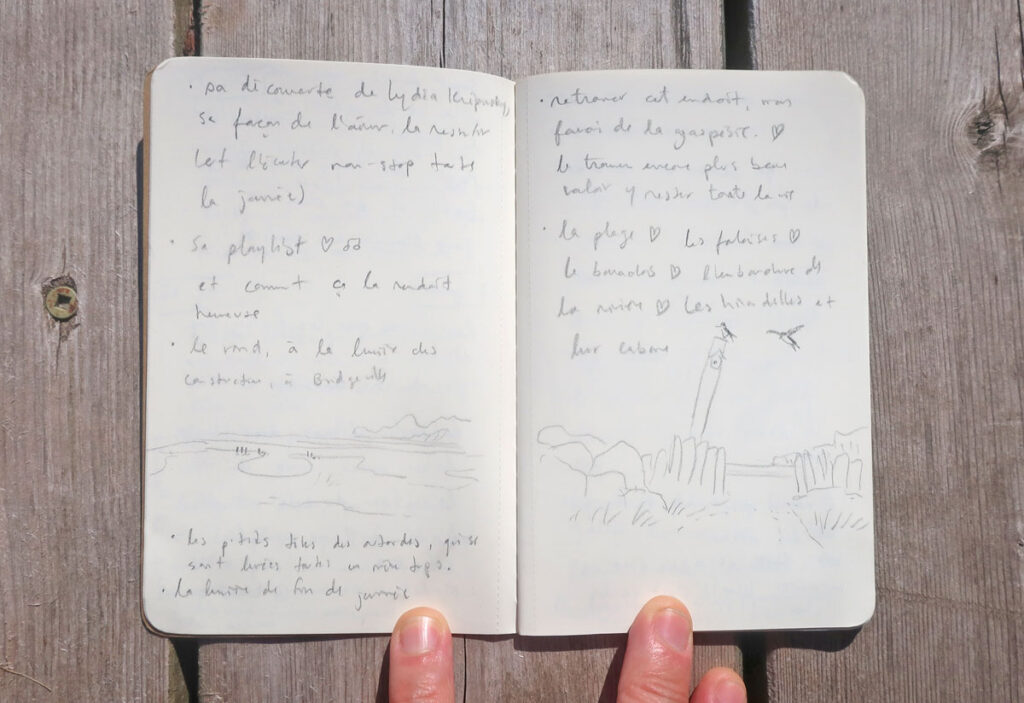 · sa découverte de Lydia
sa façon de l'aimer, la ressentir
(et l'écouter non-stop toute
la journée)
· sa playlist ♡
et comment ça la rendait
heureuse
· le rond, à la lumière des
construction, à Bridgeville
· les p'tites têtes des outardes, qui se
sont levées toutes en même temps.
· la lumière de fin de journée
· retrouver cet endroit, mon
favori de la gaspésie. ♡
le trouver encore plus beau
vouloir y rester toute la vie
· la plage ♡ les falaises ♡
le barachois ♡ l'embouchure de
la rivière ♡ Les hirondelles et
leur cabane